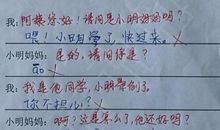 我：阿姨你好！请问是小明妈妈吗？
喂！小明胃了，快过来。
小明妈妈：是的，请问你是？
石。
我：我是他同学，小明晕倒了。
你不担心？
小明妈妈：啊？这是怎么了，他还好吗？